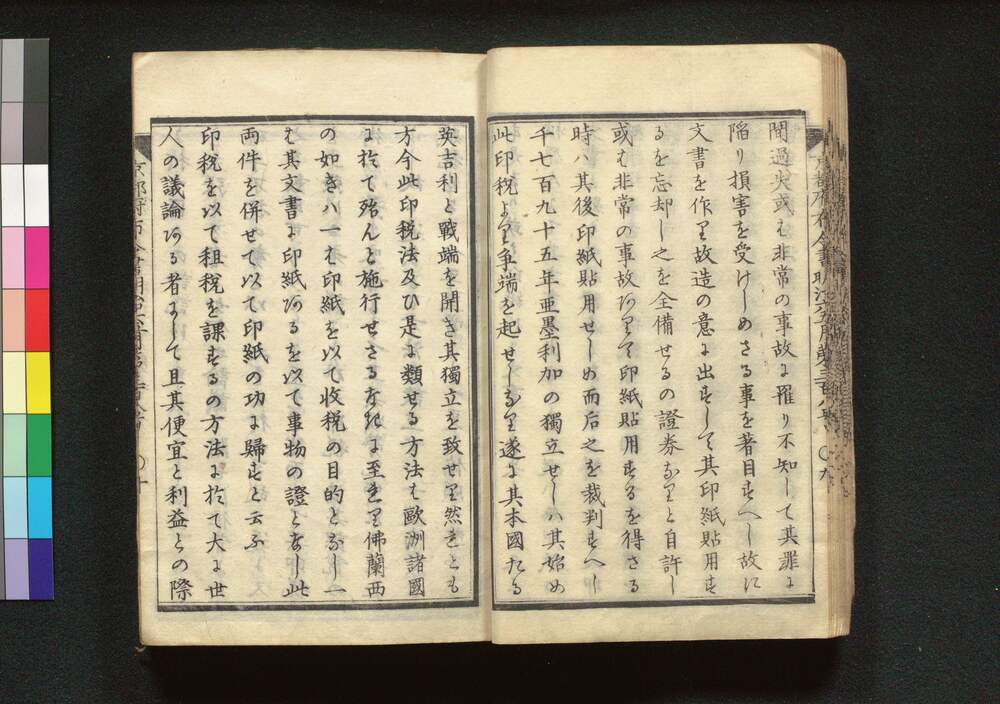 間過失或ハ非常の事故に罹り不知して其罪に
陥り損害を受けしめさる事を著目すへし故に
文書を作り故造の意に出すして其印紙貼用す
るを忘却し之を全備せるの證券なりと自許し
或は非常の事故ありて印紙貼用するを得さる
時ハ其後印紙貼用せしめ而后之を裁判すへし
千七百九十五年亜墨利加の獨立せしハ其始め
此印税より争端を起せしなり遂に其本國たる
英吉利と戦端を開き其獨立を致せり然れとも
方今此印税法及ひ是に類せる方法は歐洲諸國
に於て殆んと施行せさるなきに至れり佛蘭西
の如きハ一は印紙を以て收税の目的となし一
は其文書に印紙あるを以て事物の證となし此
両件を併せて以て印紙の功に歸すと云ふ
印税を以て租税を課するの方法に於て大に世
人の議論ある者にして且其便宜と利益との際